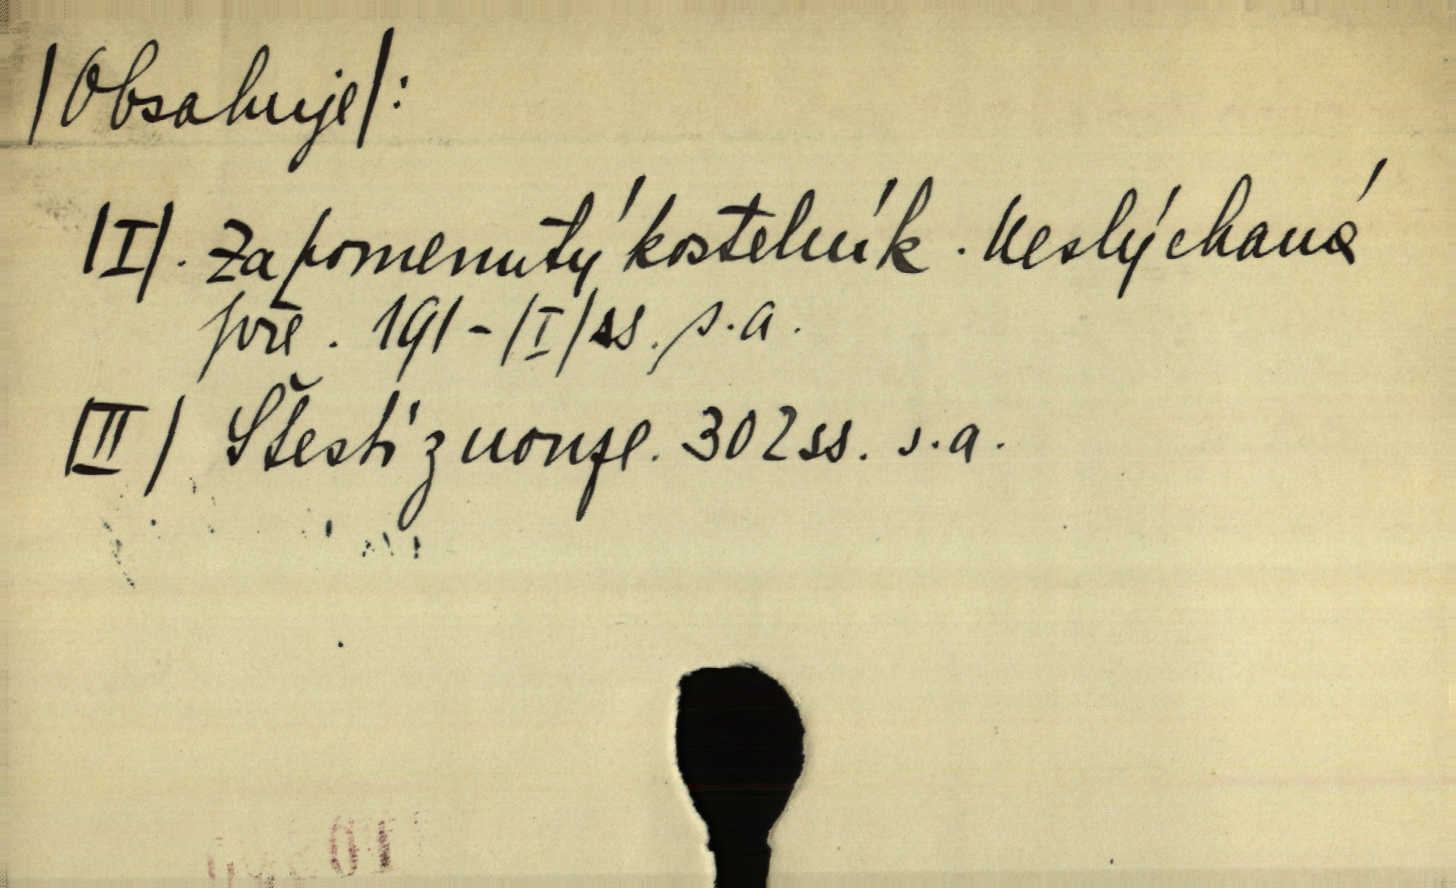 /Obsahuje/:
/I/. Zapomenutý kostelník. Neslýchaná
pře. 191-/I/ss. s.a.
/II/ Štestí z nouze. 302 ss. s.a.